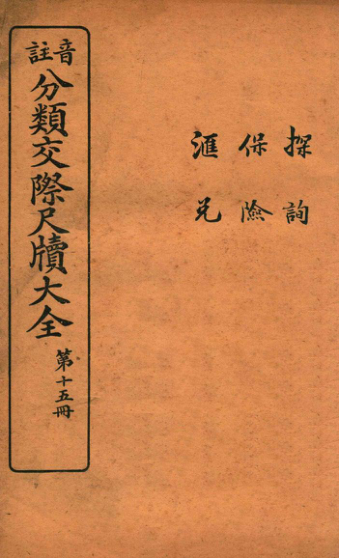 探詢
保險
滙兌
音註
分類交際尺牘大全
第十五冊